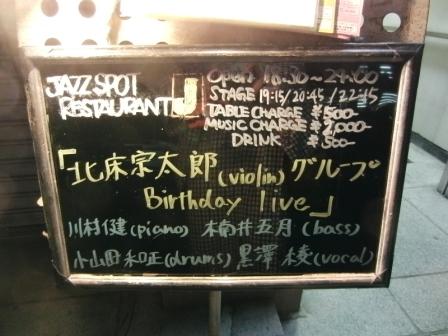 JAZZ SPOT
RESTAURANT J
Open 18:30~24:00
STAGE 19:15/20:45/22:15
TABLE CHARGE ¥500-
MUSIC CHARGE ¥2,000-
DRINK ¥500-
「北床宗太郎(violin)グループ
Birthday live」
川村健(piano) 楠井五月(bass)
小山田和正(drums) 黒澤綾(vocal)